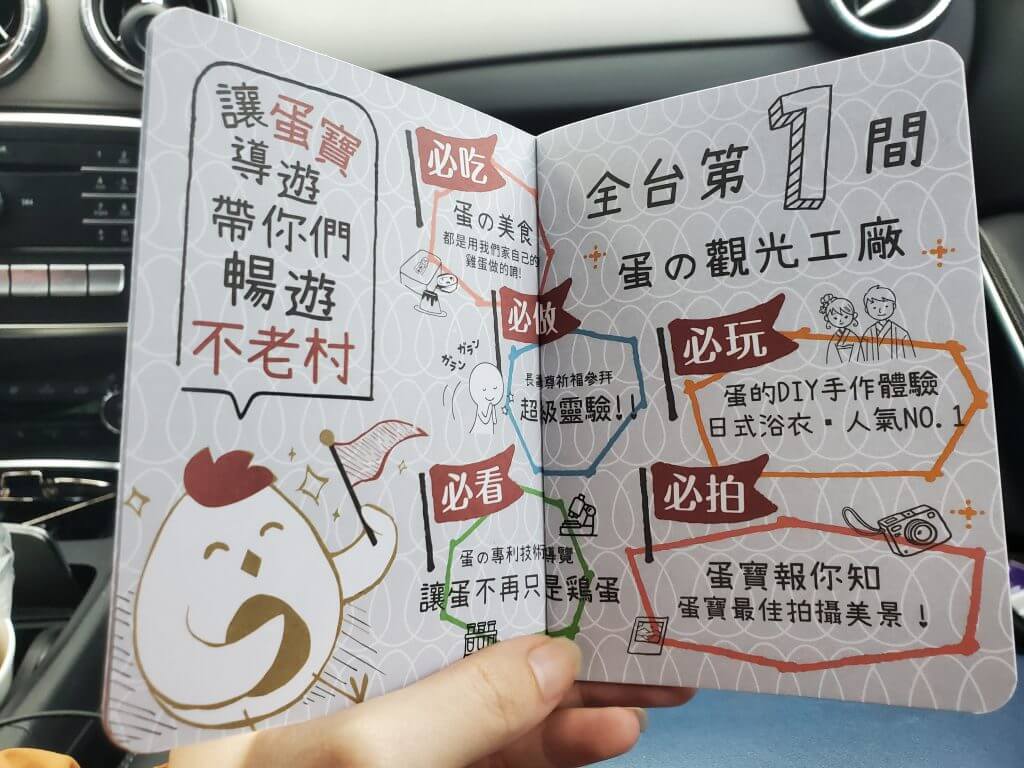 讓蛋寶
導遊
帶你們
暢遊
不老村
必吃
蛋の美食
都是用我們家自己的
雞蛋做的唷!
必做
ガラン
ガラン
長壽尊祈福參拜
超級靈驗!!
必看
蛋の專利技術導覽
讓蛋不再只是鶏蛋
全台第1間
蛋の觀光工廠
必玩
蛋的DIY手作體驗
日式浴衣·人氣NO.1
必拍
蛋寶報你知
蛋寶最佳拍攝美景!